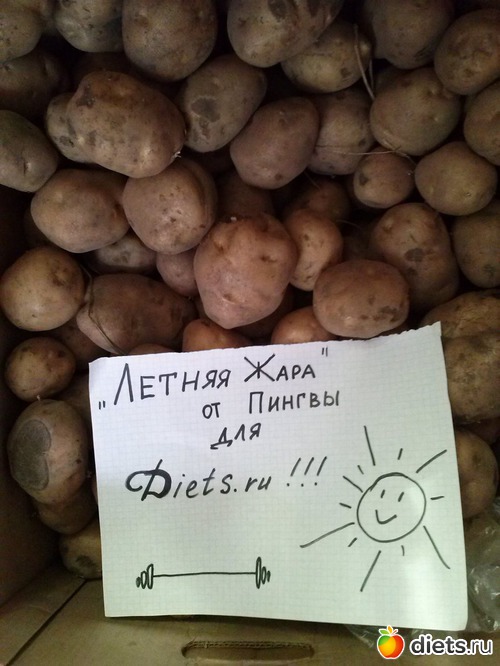 „Летняя Жара"
от Пингвы
для
Diets.ru !!!
diets.ru